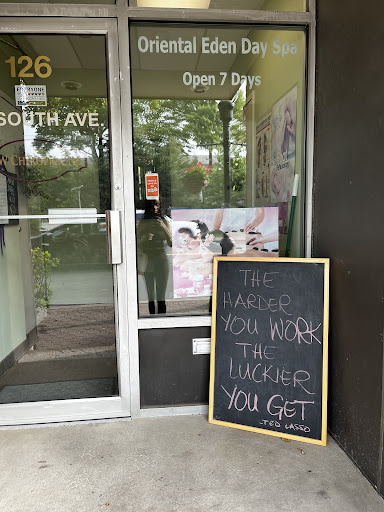 Oriental Eden Day Spa
Open 7 Days
126
EVERYONE
SOUTH AVE.
THE
HARDER
YOU WORK
THE
LUCKIER
YOU GET
-TED LASSO